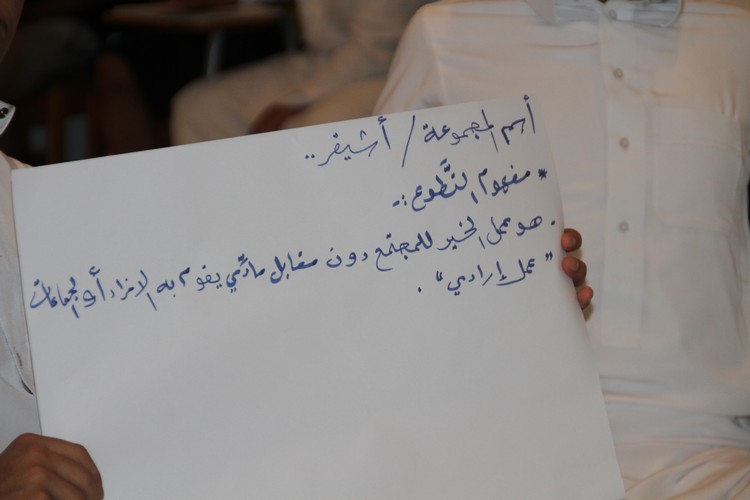 أسم المجموعة / أشيفر ..
* مفهوم التَّطوع :-
. هو عمل الخير للمجتمع دون مقابل مادّي يقوم به الافراد أو الجماعات
"عمل إرادي" .